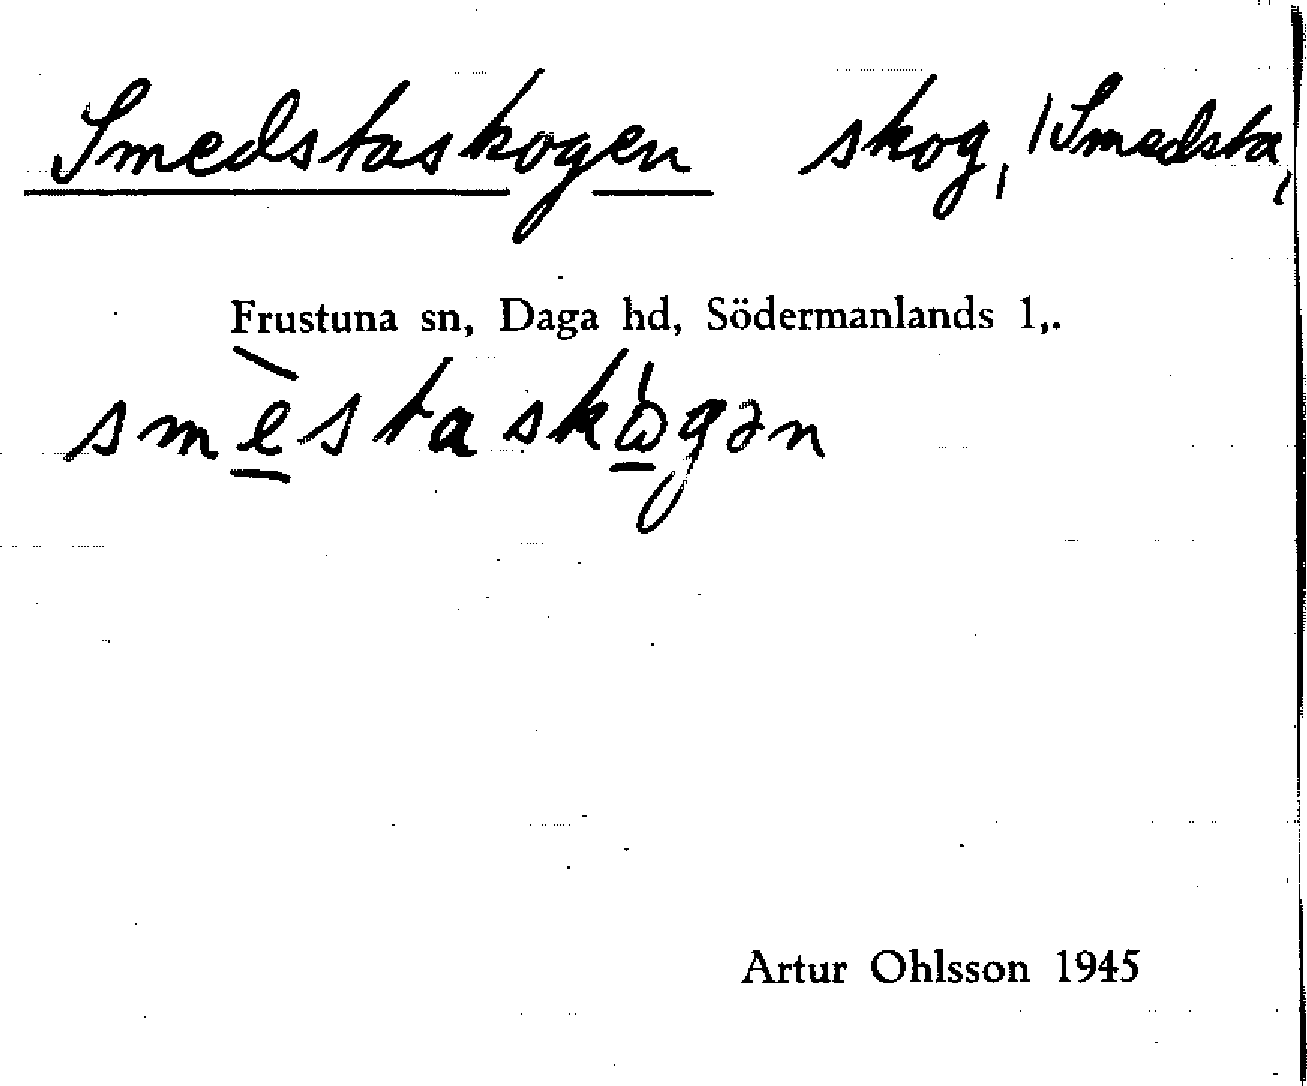 Smedstaskogen skog, /Smedsta,
Frustuna sn, Daga hd, Södermanlands l,.
smè̱staskώ̱gən
Artur Ohlsson 1945